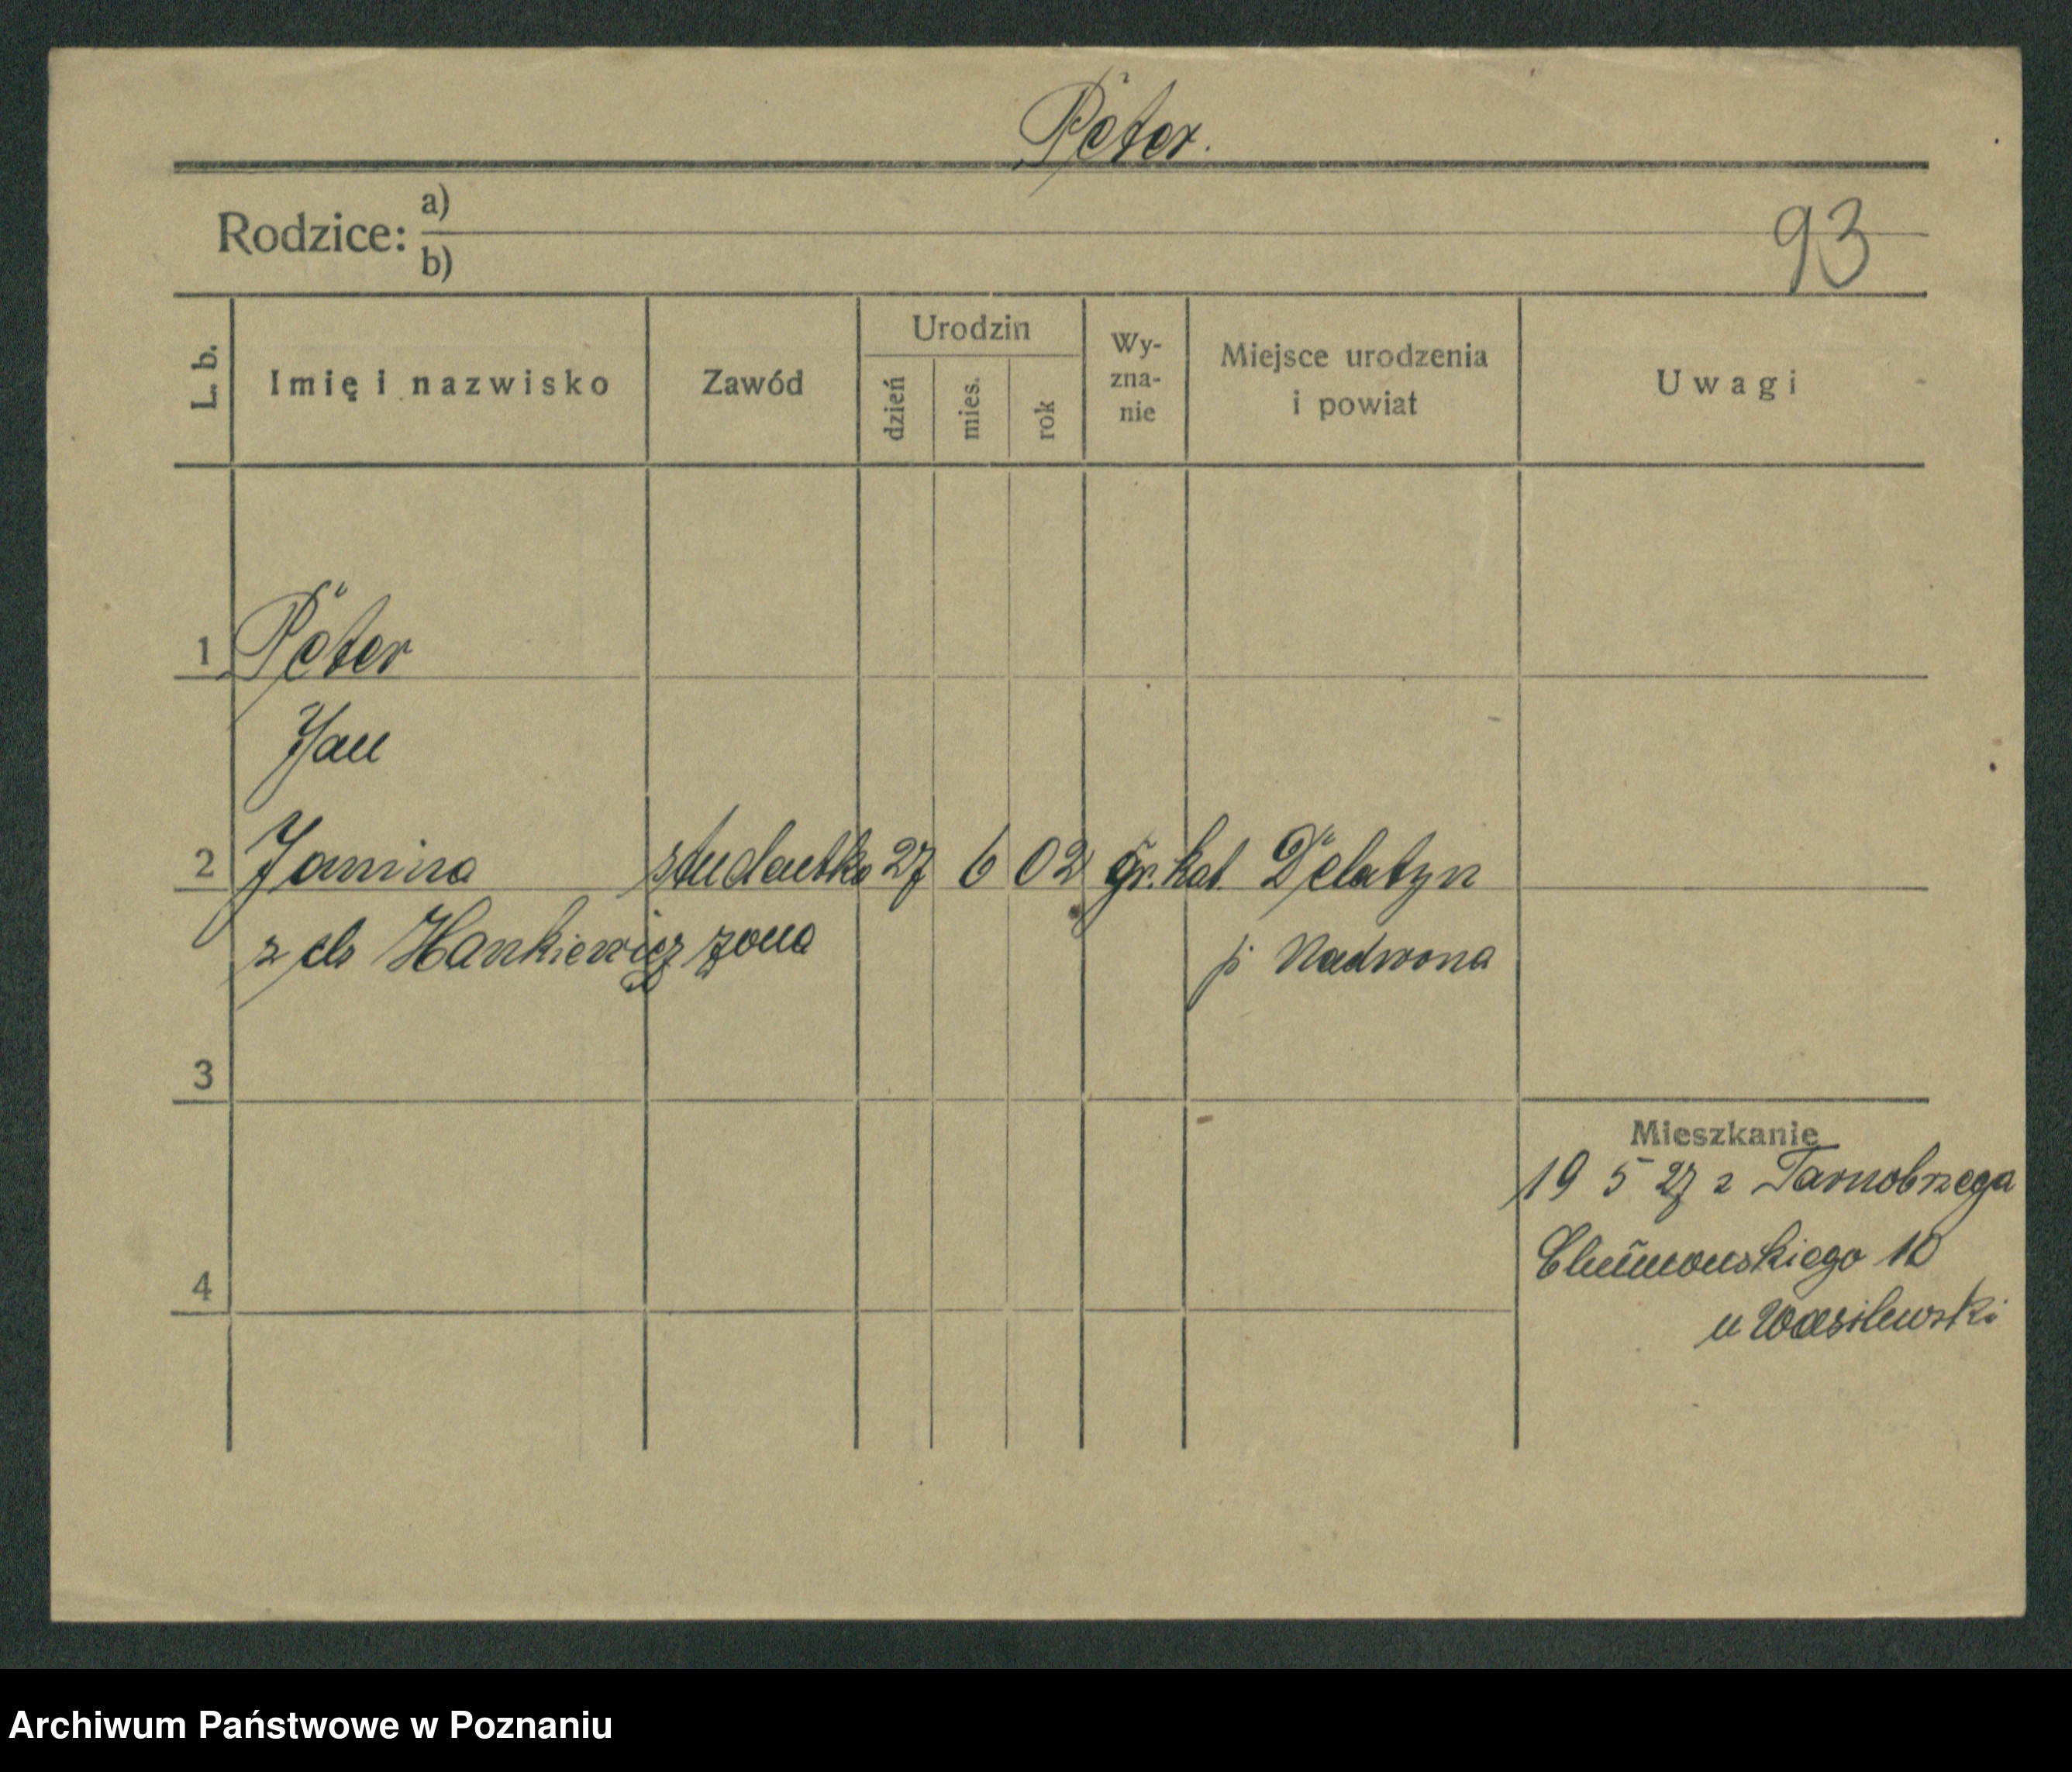 Peter.
Rodzice: a)
b)
93
L. b. Imię i nazwisko Zawód Urodzin dzień mies. rok Wy-zna-nie Miejsce urodzenia i powiat Uwagi
1 Peter
Jan
2 Janina studentka 27 6 02 gr. kat. Delatyn
z do Hankiewicz żona p. Nadwona
3
Mieszkanie
19 5 27 z Tarnobrzega
10
4
u Wasilewski
Archiwum Państwowe w Poznaniu